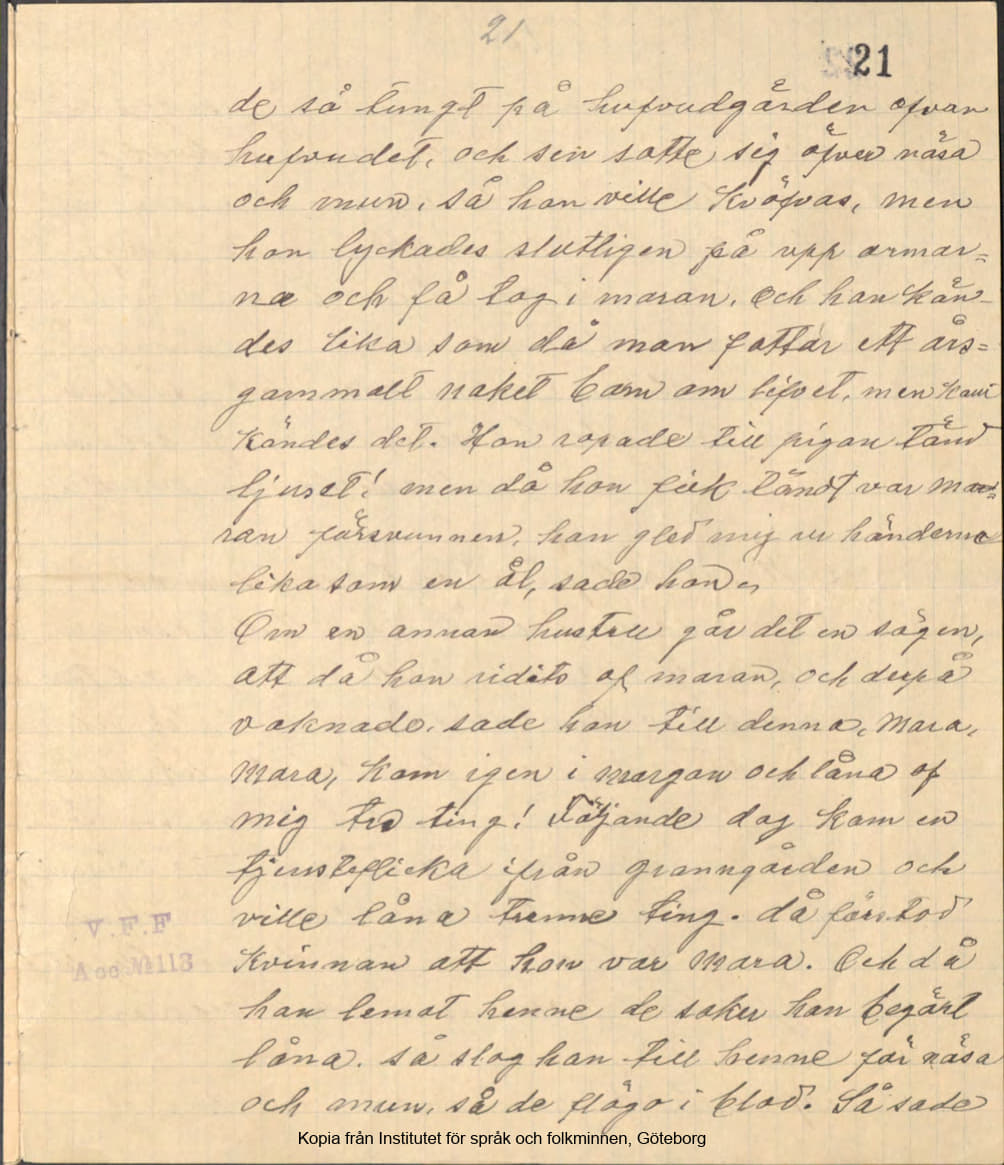 21
21
de så tungt på hufvudgärden ofvan
hufvudet, och sen satte sig öfver näsa
och mun, så hon ville kvöfvas, men
hon lyckades slutligen få upp armar=
na och få tag i maran. Och hon kän-
des lika som då man fattar ett års=
gammalt naket barn om lifvet, men
kändes det. Hon ropade till pigan tänd
ljuset! men då hon fick tändt var ma=
ran försvunnen, hon gled mig ur händerna
lika som en ål, sade hon.
Om en annan hustru går det en sägen,
att då hon ridits af maran, och derpå
vaknade, sade hon till denna, Mara,
Mara, kom igen i morgon och låna af
mig tre ting! Följande dag kom en
tjensteflicka ifrån granngården och
ville låna trenne ting. då förstod
kvinnan att hon var mara. Och då
hon lemat henne de saker hon begärt
låna. så slog hon till henne för näsa
och mun, så de flögo i blod. Så sade
V.F.F
Acc №113
Kopia från Institutet för språk och folkminnen, Göteborg